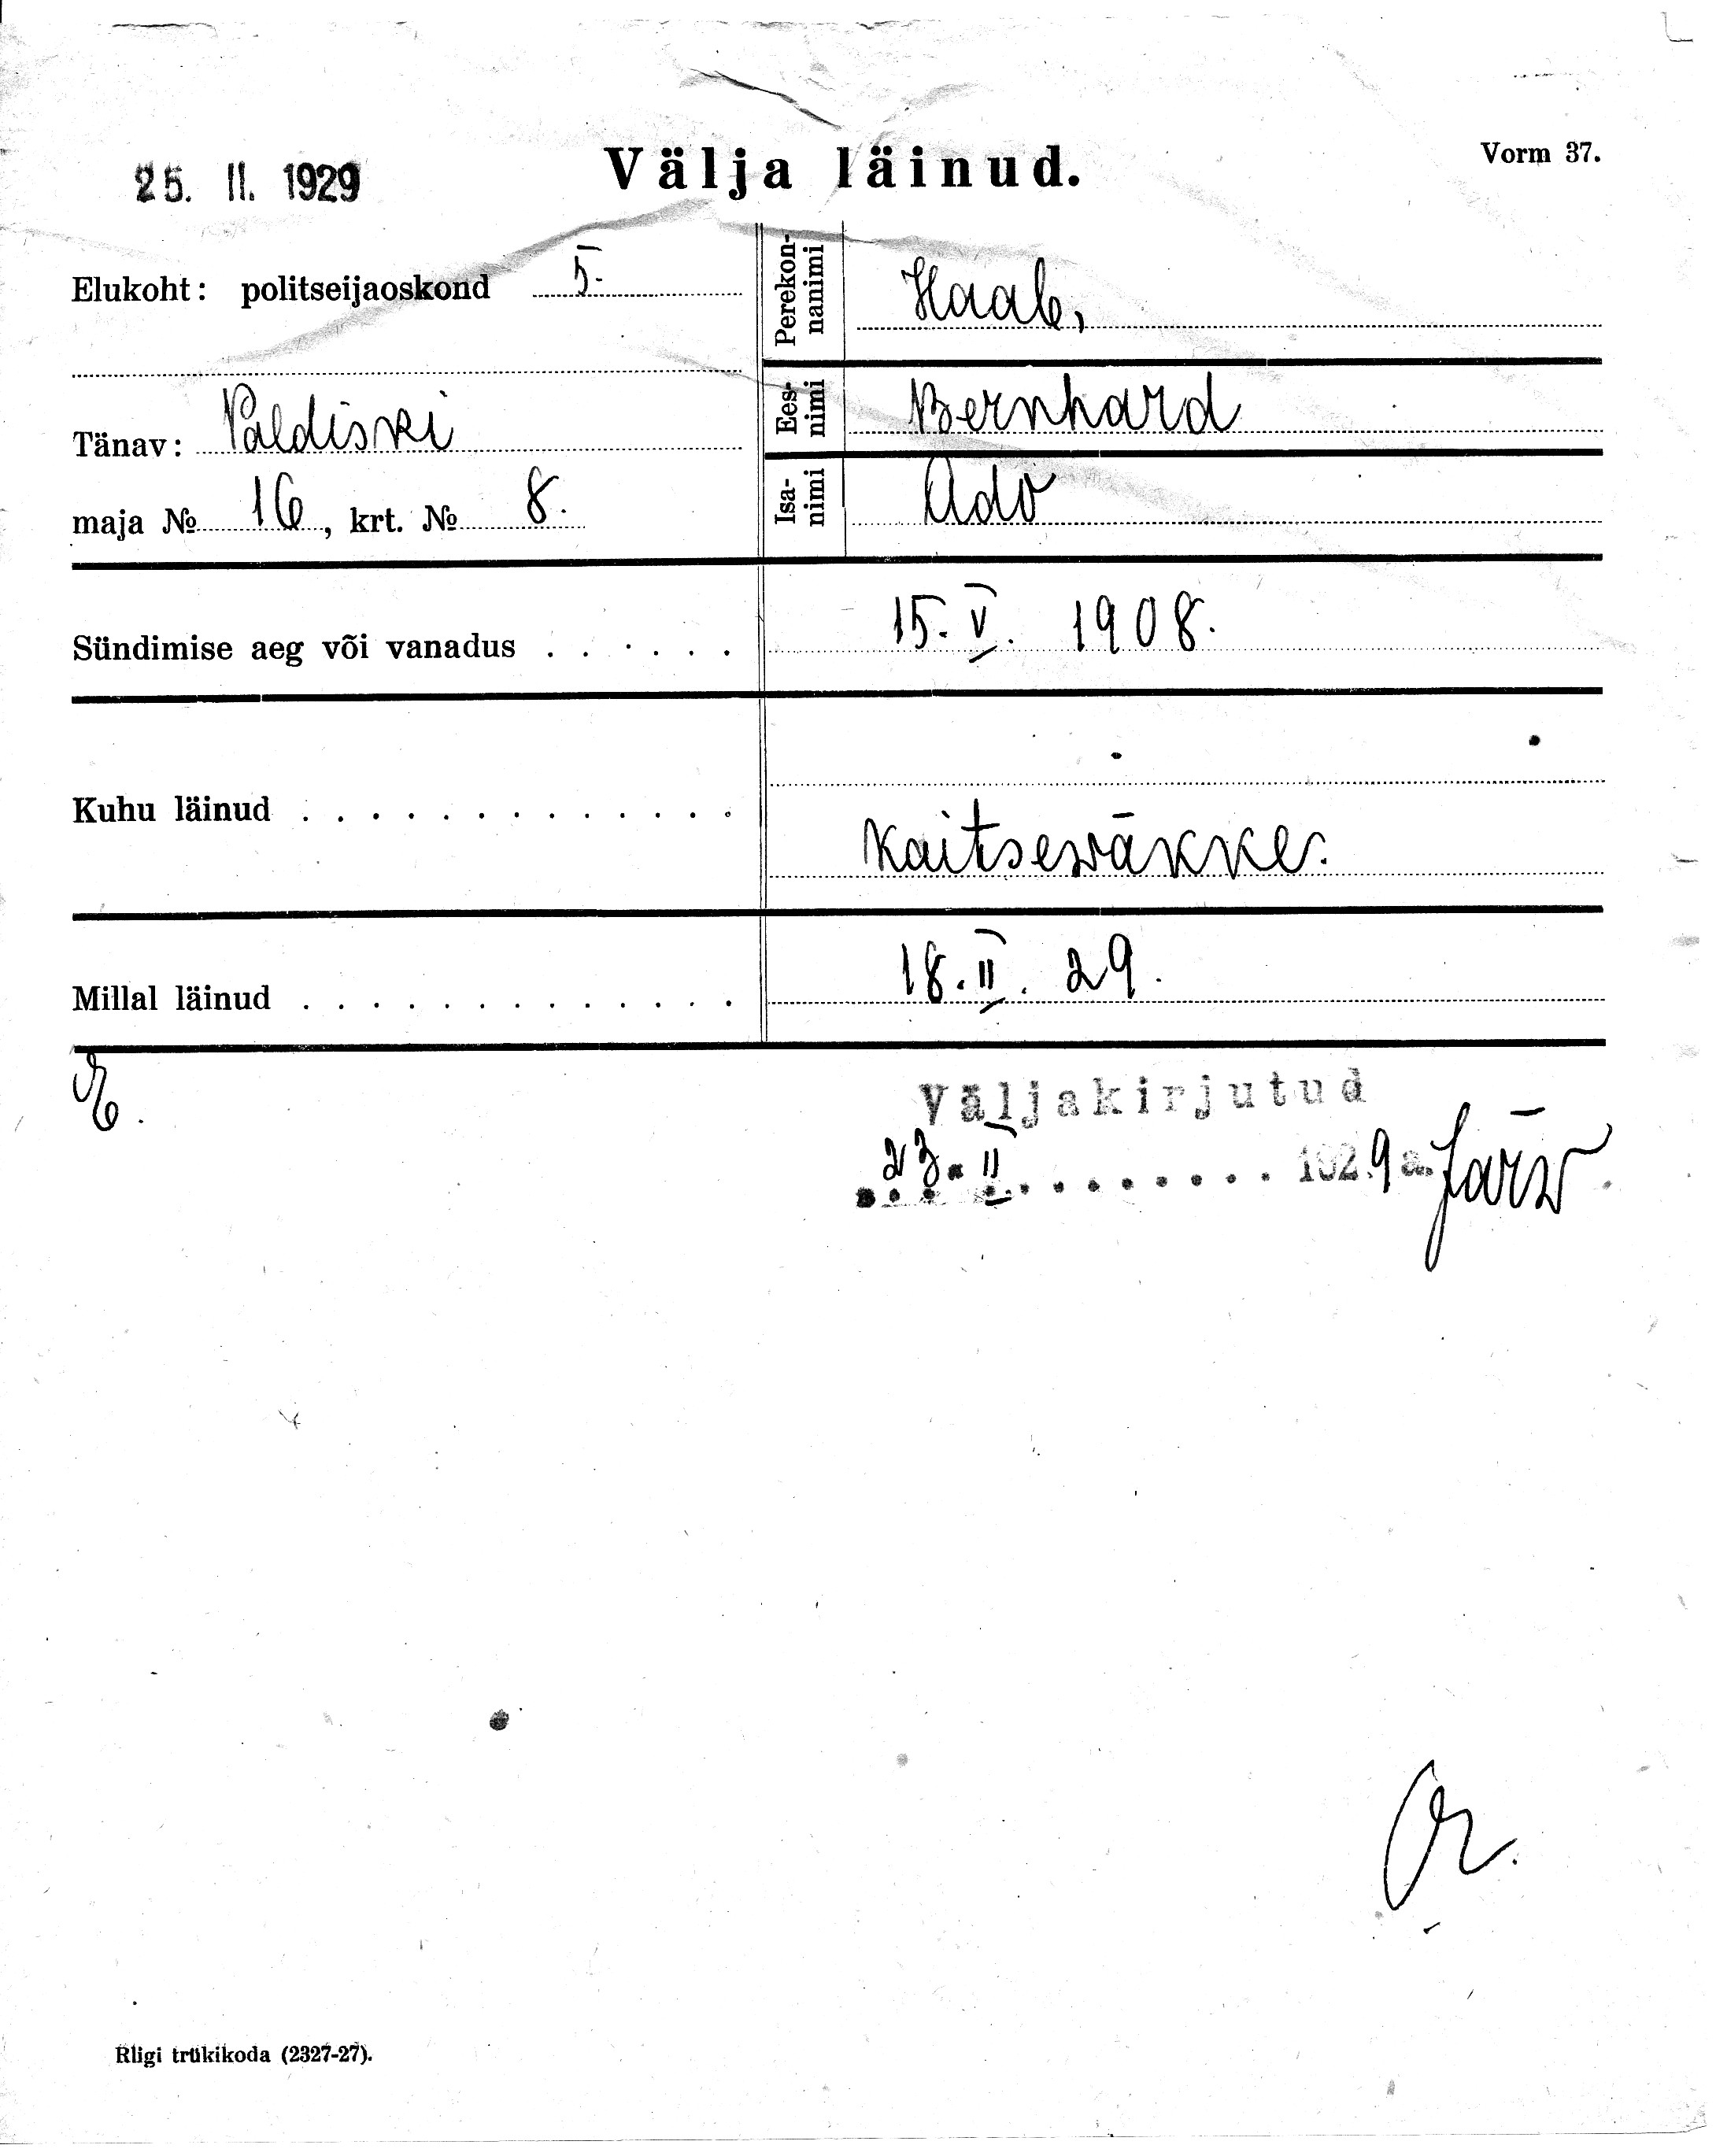 Vorm 37.
25. II. 1929
Välja läinud.
Elukoht: politseijaoskond 5.
Tänav: Paldiski
maja № 16, krt. № 8.
Perekonnanimi Haab,
Eesnimi Bernhard
Isanimi Ado
Sündimise aeg või vanadus . . . . . . 15. V. 1908.
Kuhu läinud . . . . . . . . . . . . . Kaitsewäkke.
Millal läinud . . . . . . . . . . . . . 18. II. 29.
Väljakirjutud
23. II 1929 a. Järw
Riigi trükikoda (2327-27).